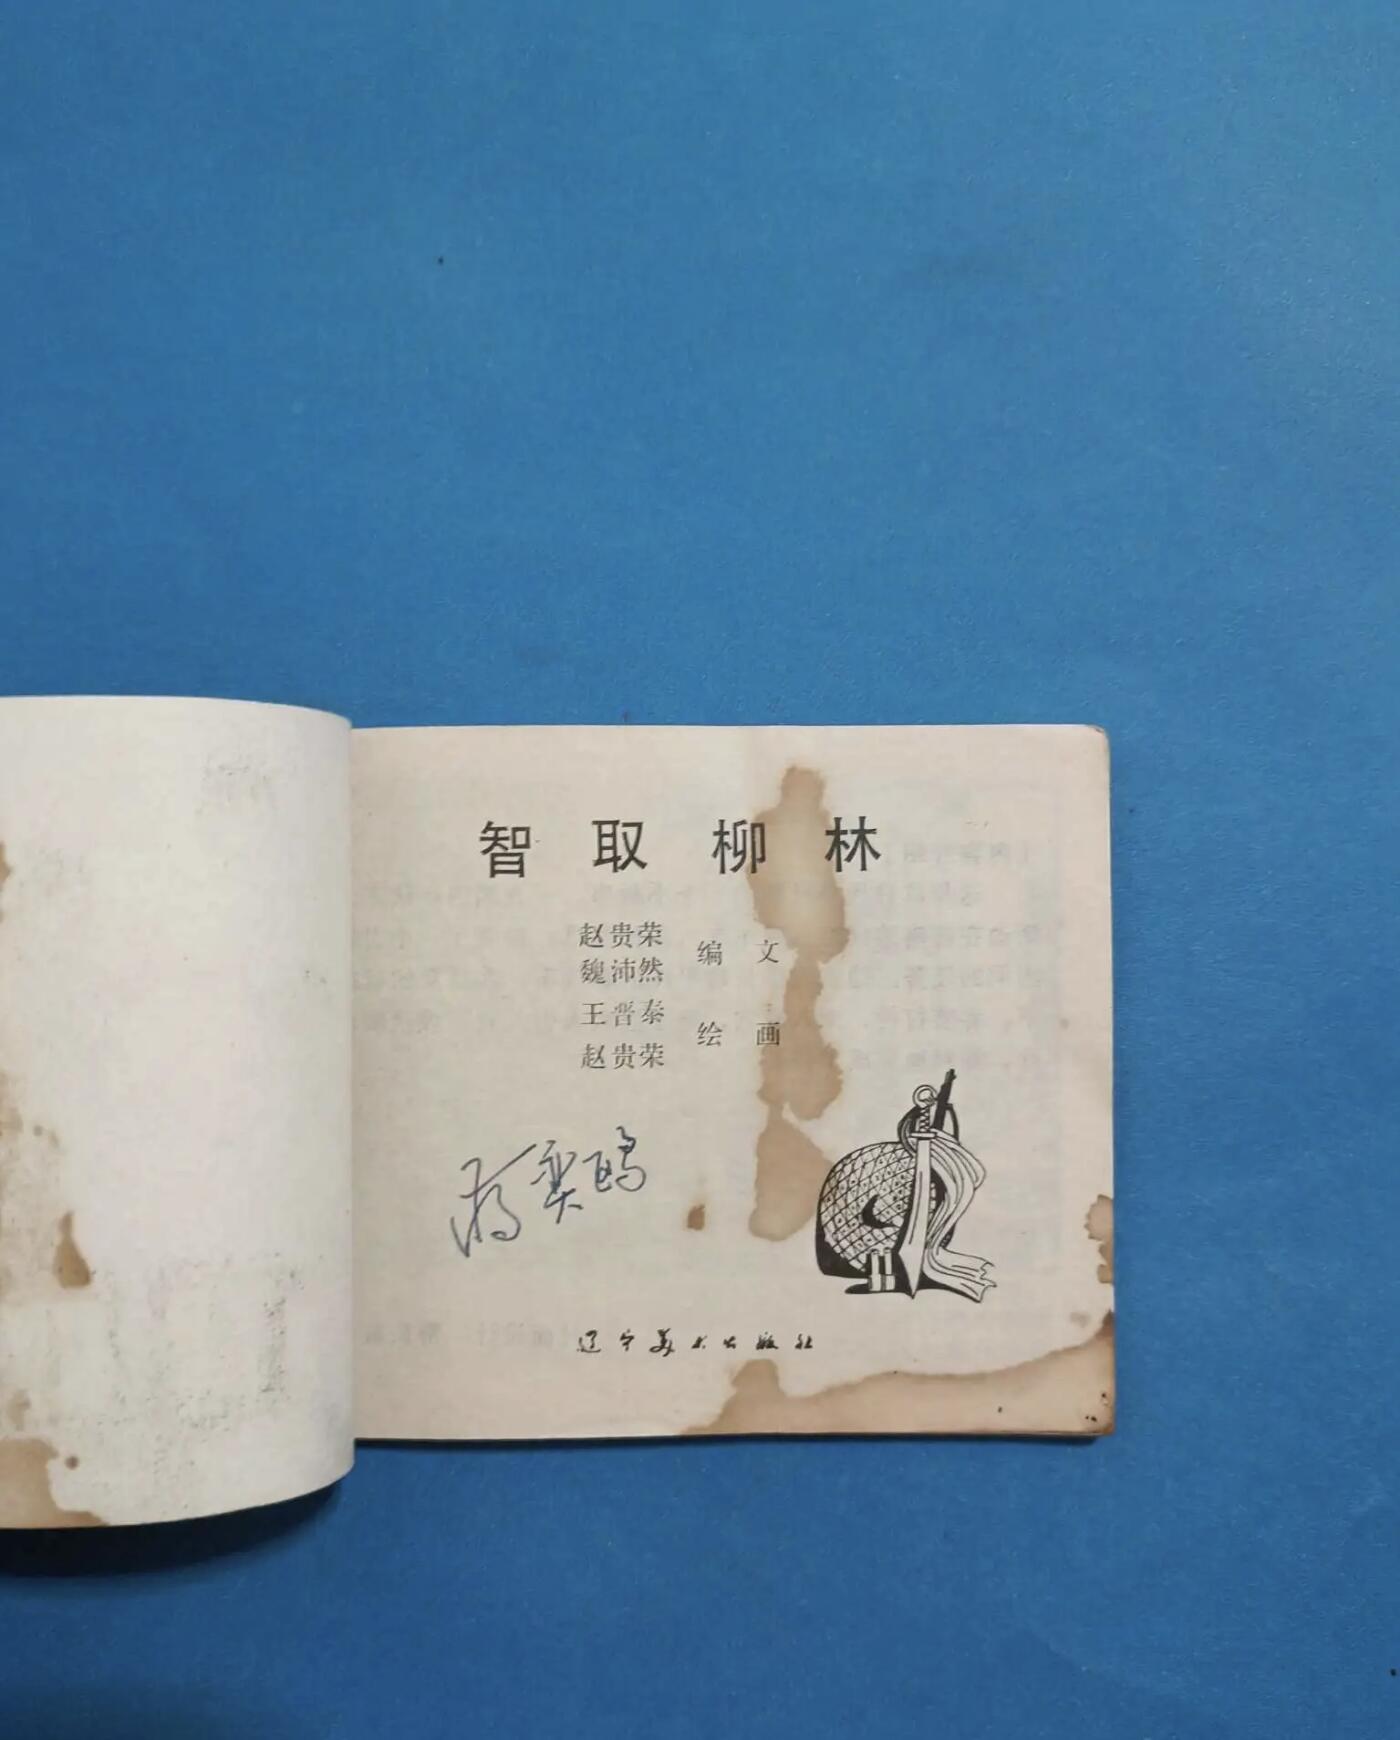 智取柳林
赵贵荣
魏沛然
编文
王晋泰
赵贵荣
绘画
辽宁美术出版社